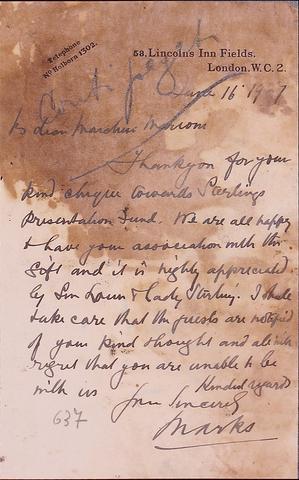 Telephone
No Holborn 1302.
53, Lincoln's Inn Fields.
London. W.C. 2.
June 16
Thank you for your
kind cheque towards Sterlings
Presentation Fund. We are all happy
to have your association with the
Gift and it is highly appreciated
by Sir Louis & Lady Sterling. I shall
take care that the guests are notified
of your kind thought and also
regret that you are unable to be
with us Kindest regards
Yours Sincerely
Marks
637